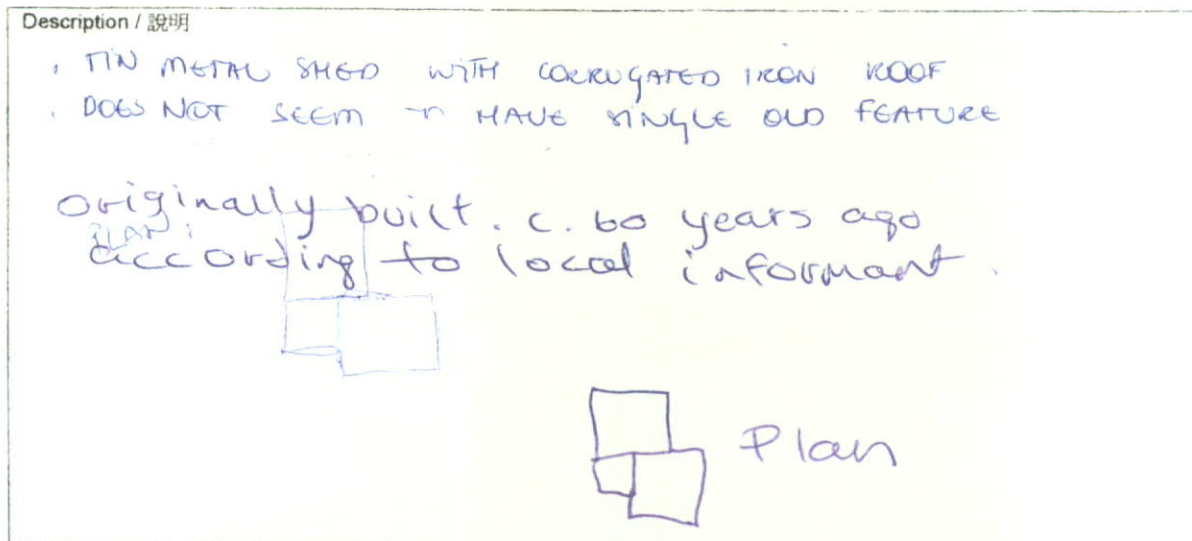 Description / 說明
. TIN METAL SHED WITH CORRUGATED IRON ROOF
. DOES NOT SEEM TO HAVE SINGLE OLD FEATURE
Originally built. c. 60 years ago
PLAN:
according to local informant.
Plan